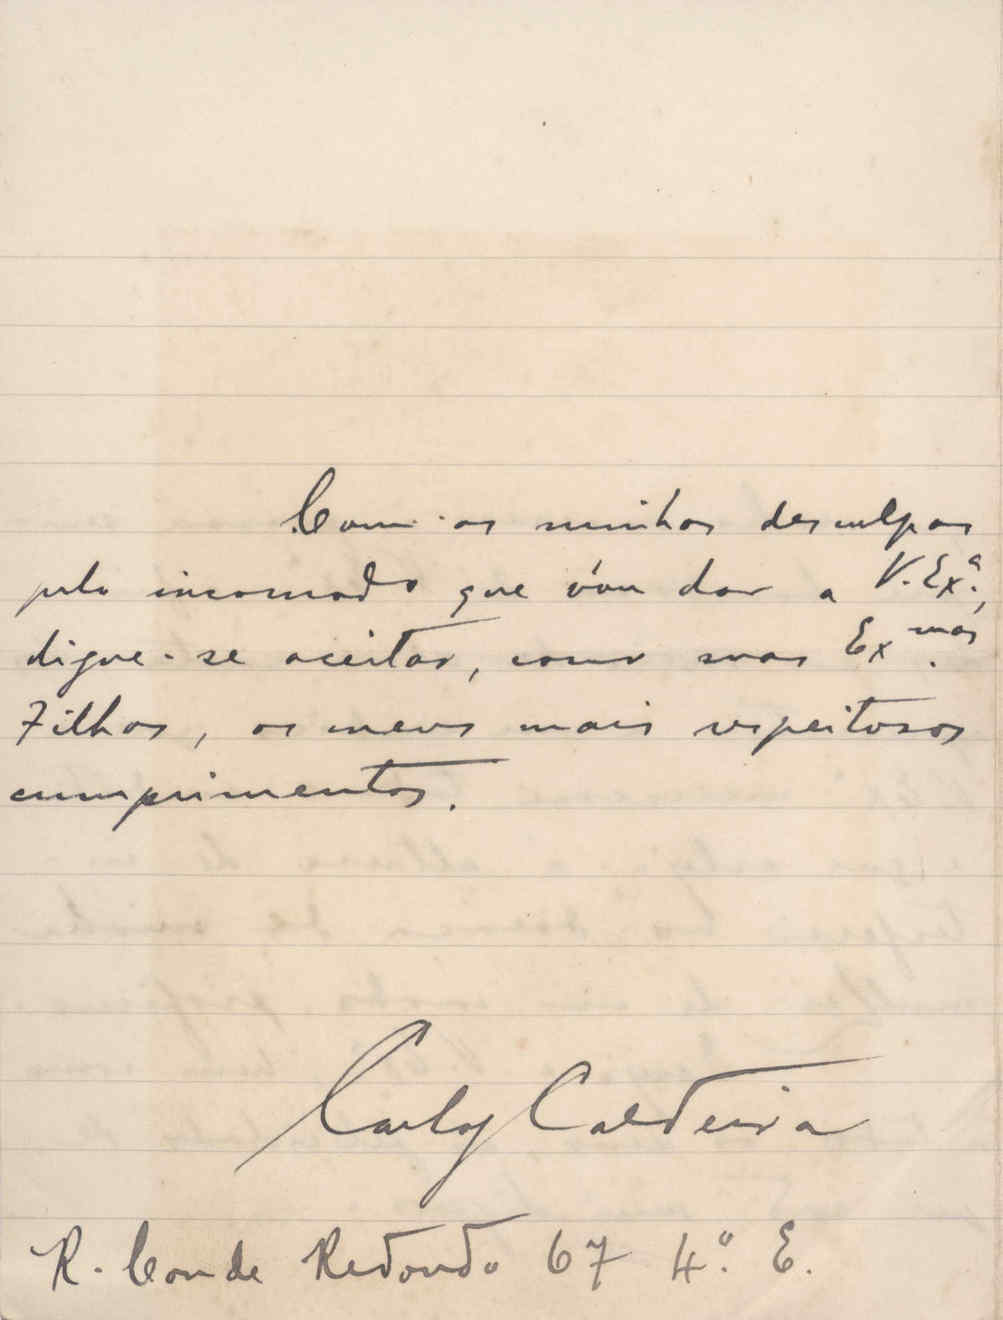 Com as minhas desculpas
pelo incomodo que vou dar a V. Exª.,
digne-se aceitar, como suas Ex.mas
Filhas, os meus mais respeitosos
cumprimentos.
Carlos Caldeira
R. Conde Redondo 67 4.º E.